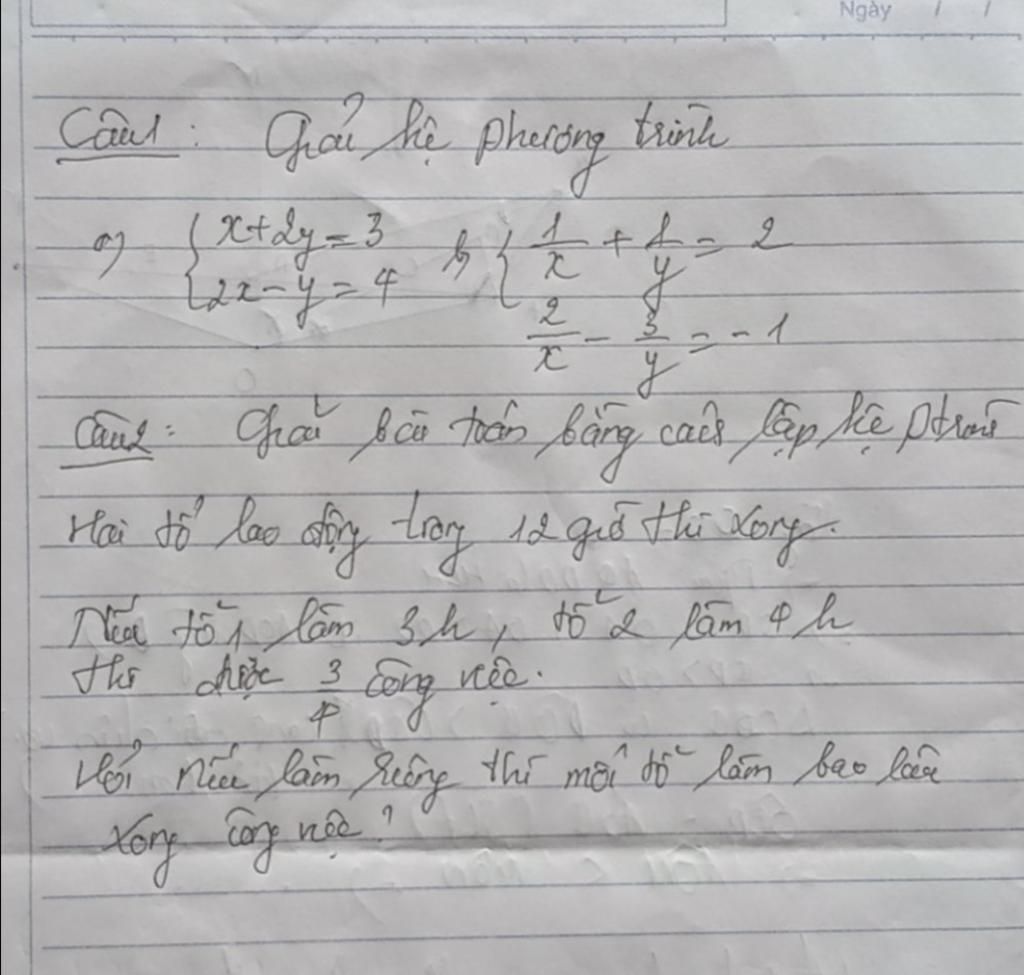 Ngày / /
Câu1: Giải hệ phương trình
a) { x+2y=3 b) { 1/x + 1/y = 2
2x-y=4
2/x - 3/y = -1
Câu2: Giải bài toán bằng cách lập hệ ptrình
Hai tổ lao động trong 12 giờ thì xong.
Nếu tổ 1 làm 3h, tổ 2 làm 4h
thì được 3/4 công việc.
Hỏi nếu làm riêng thì mỗi tổ làm bao lâu
xong công việc?